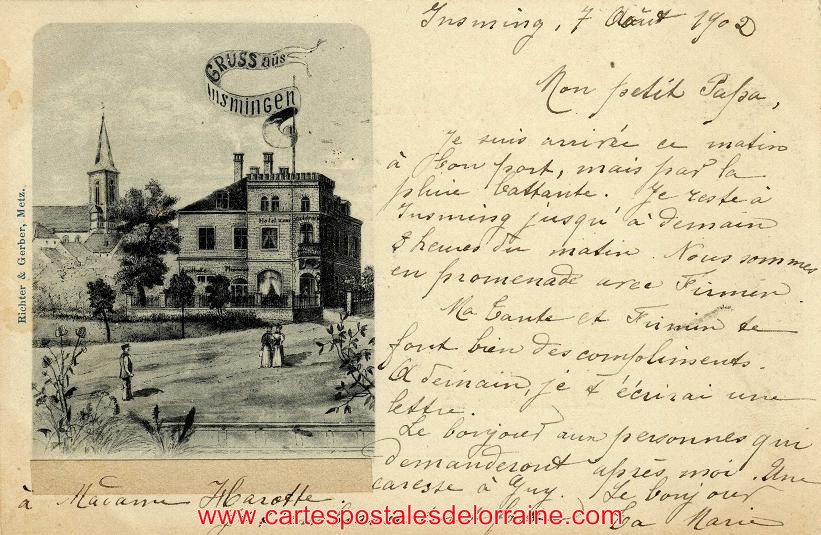 Insming, 7 Août 1902
Mon petit Papa,
Je suis arrivée ce matin
à bon port, mais par la
pluie battante. Je reste à
Insming jusqu'à demain
8 heures du matin. Nous sommes
en promenade avec Firmin.
Ma tante et Firmin te
font bien des compliments.
A demain, je t'écrirai une
lettre.
Le bonjour aux personnes qui
demanderont après moi. Une
caresse à Guy. Le bonjour
à Madame Harotte.
Ta Marie
GRUSS aus
Insmingen
Hotel
Richter & Gerber, Metz.
www.cartespostalesdelorraine.com